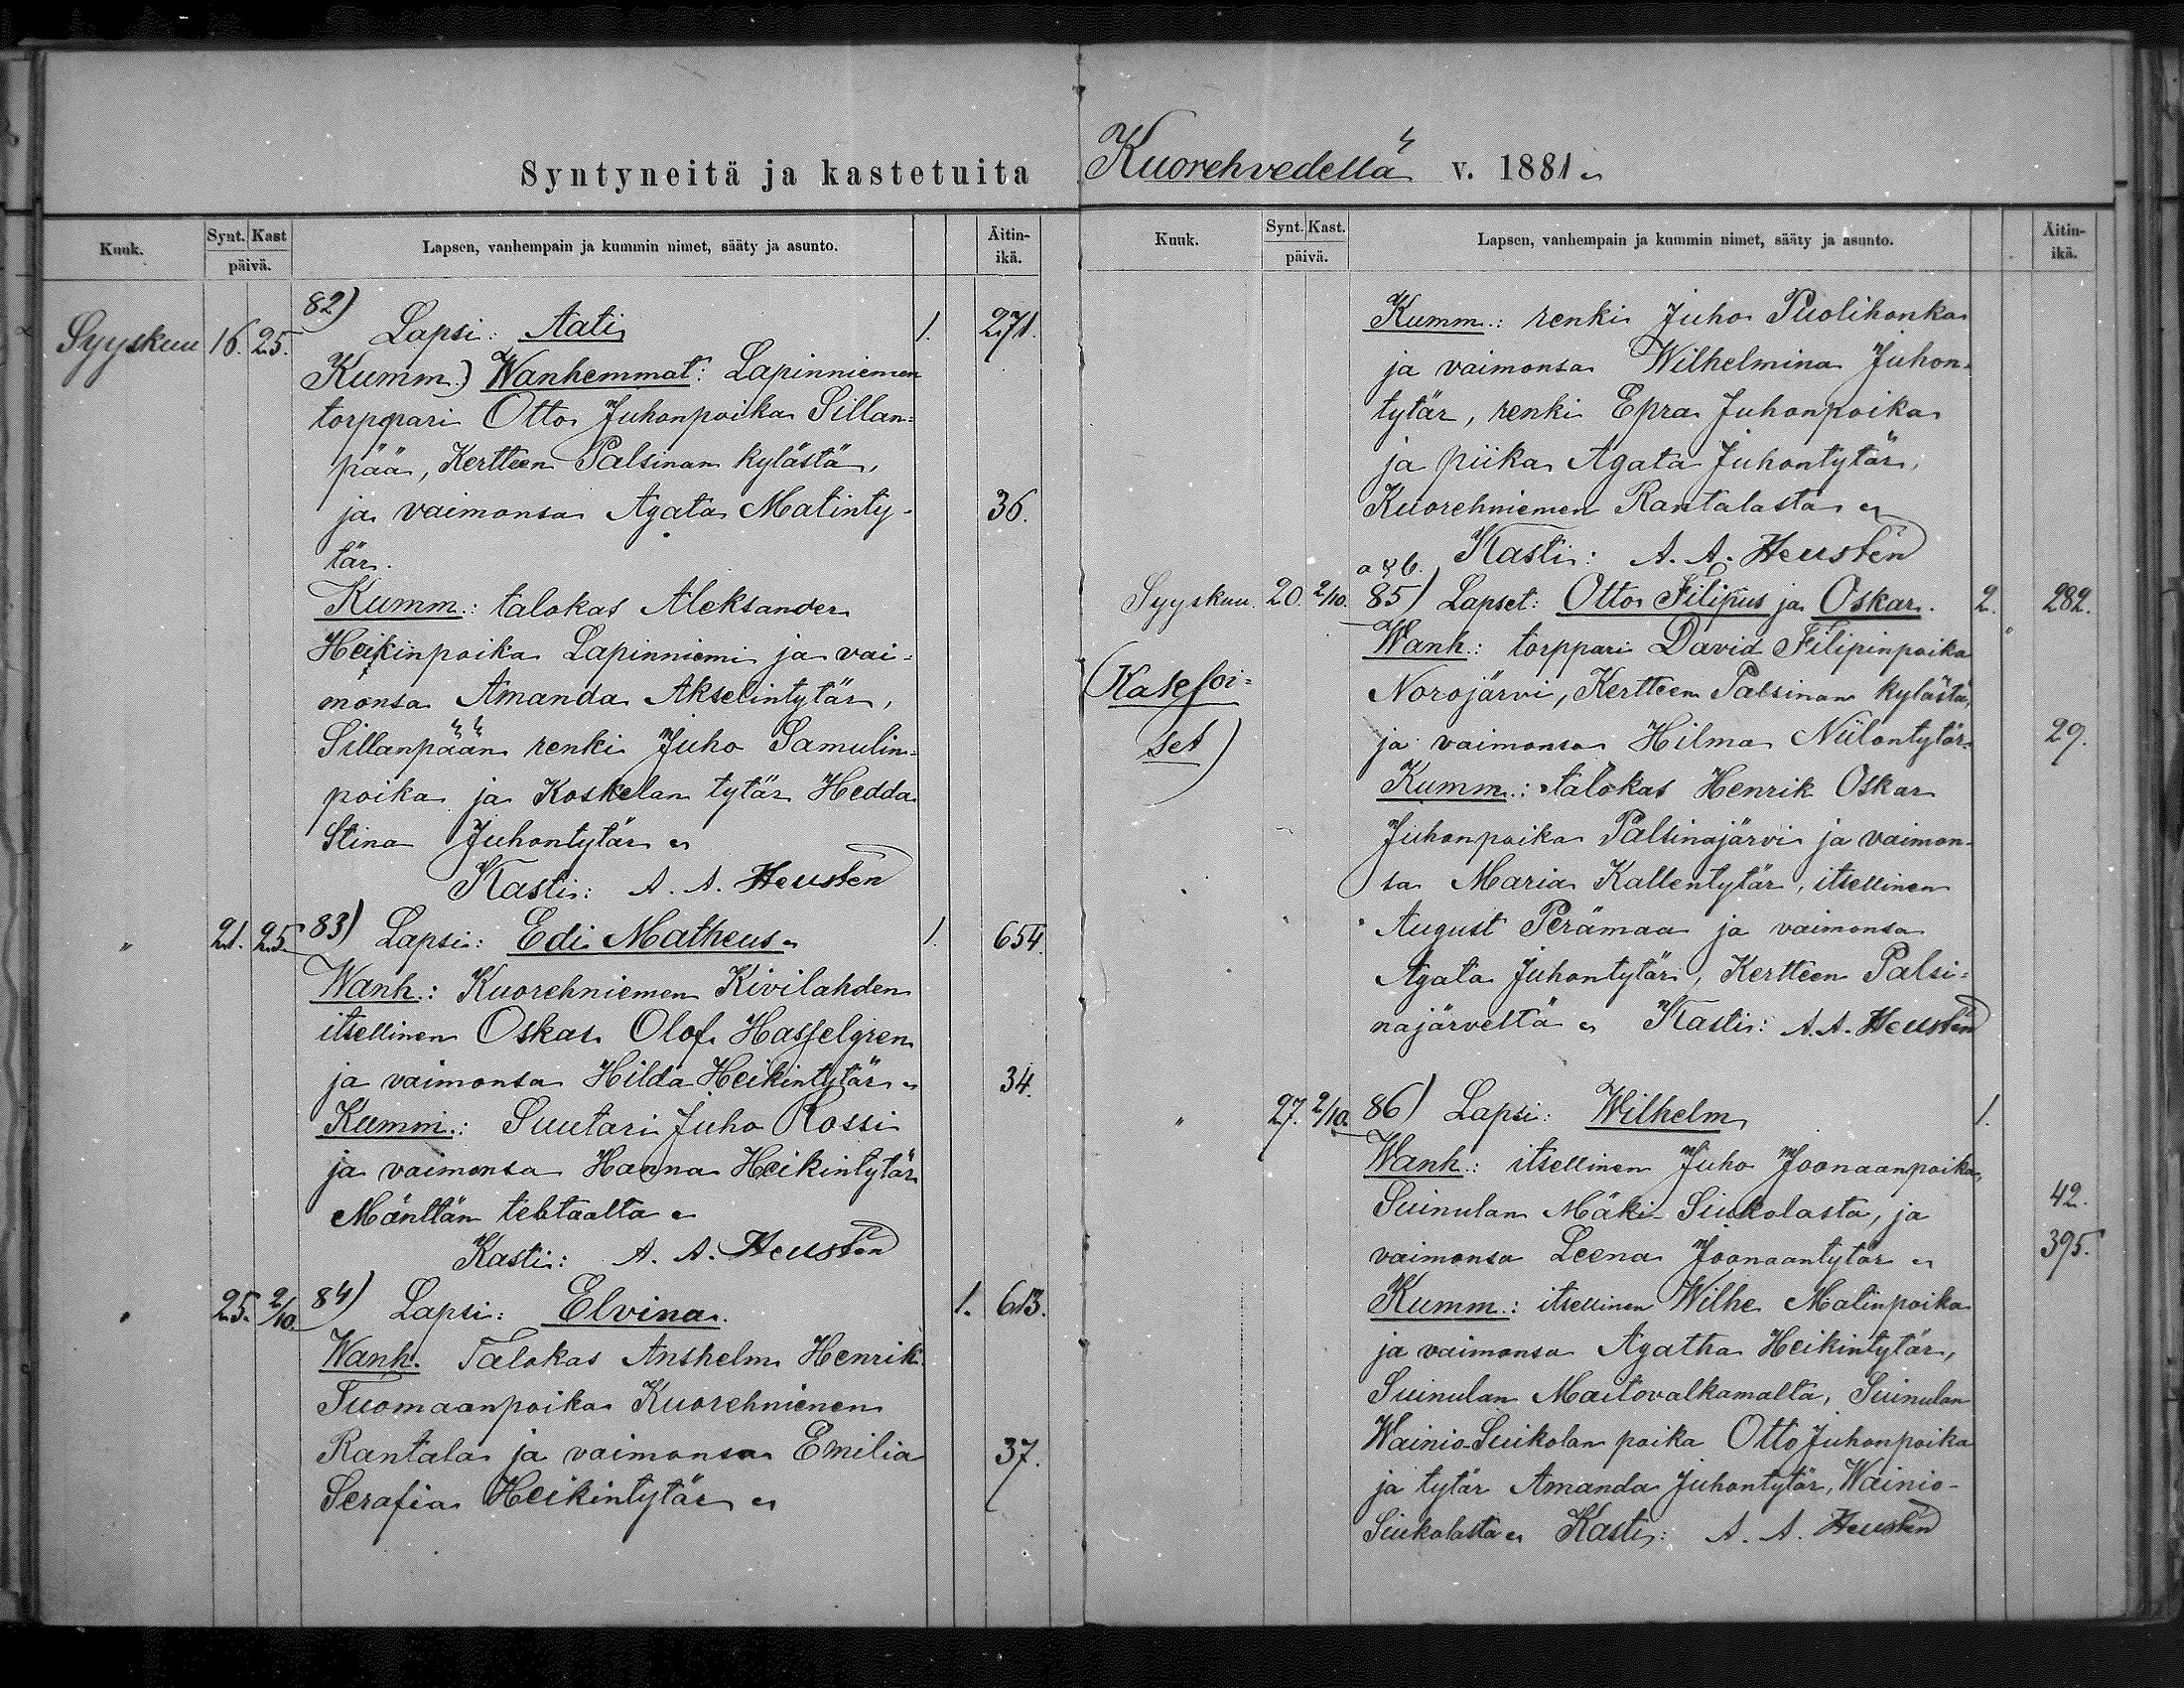 Syntyneitä ja kastetuita
Kuuk. Synt. Kast päivä. Lapsen, vanhempain ja kummin nimet, sääty ja asunto. Äitin-ikä.
82)
Syyskuu 16. 25. Lapsi: Aati 1. 271.
Kumm.) Wanhemmat: Lapinniemen
torppari Otto Juhonpoika Sillan=
pää, Kertteen Palsinan kylästä,
ja vaimonsa Agata Matinty- 36.
tär.
Kumm.: talokas Aleksander
Heikinpoika Lapinniemi ja vai=
monsa Amanda Akselintytär,
Sillanpään renki Juho Samulin=
poika ja Koskelan tytär Hedda
Stina Juhontytär
Kasti: A. A. Heusten
" 21. 25. 83) Lapsi: Edi Matheus 1. 654.
Wanh.: Kuorehniemen Kivilahden
itsellinen Oskar Olof Hasselgren
ja vaimonsa Hilda Heikintytär 34.
Kummi.: Suutari Juho Rossi
ja vaimonsa Hanna Heikintytär
Mänttän tehtaalta
Kasti: A. A. Heustén
" 25. 2/10. 84) Lapsi: Elvina. 1. 613.
Wanh. Talokas Anshelm Henrik
Tuomaanpoika Kuorehniemen
Rantala ja vaimonsa Emilia 37.
Serafia Heikintytär
Kuorehvedellä v. 1881
Kuuk. Synt. Kast. päivä. Lapsen, vanhempain ja kummin nimet, sääty ja asunto. Äitin-ikä.
Kumm.: renki Juho Puolihonka
ja vaimonsa Wilhelmina Juhon-
tytär, renki Epra Juhonpoika
ja piika Agata Juhontytär,
Kuorehniemen Rantalasta
Kasti: A. A. Heustén
a & b.
Syyskuu. 20. 2/10. 85) Lapset: Otto Filipus ja Oskar. 2. 282.
Wanh.: torppari David Filipinpoika
(Kaksoi= Norojärvi, Kertteen Palsinan kylästä,
set) ja vaimonsa Hilma Niilontytär 29.
Kumm.: talokas Henrik Oskar
Juhonpoika Palsinajärvi ja vaimon-
sa Maria Kallentytär, itsellinen
August Perämaa ja vaimonsa
Agata Juhontytär, Kertteen Palsi=
najärveltä Kasti: A. A. Heustén
" 27. 2/10. 86) Lapsi: Wilhelm 1.
Wanh.: itsellinen Juho Joonaanpoika,
Suinulan Mäki-Siukolasta, ja 42.
vaimonsa Leena Joonaantytär 395.
Kumm.: itsellinen Wilhe Matinpoika
ja vaimonsa Agatha Heikintytär,
Suinulan Maitovalkamalta, Suinulan
Wainio-Siukolan poika Otto Juhonpoika
ja tytär Amanda Juhontytär, Wainio-
Siukolasta Kasti: A. A. Heustén